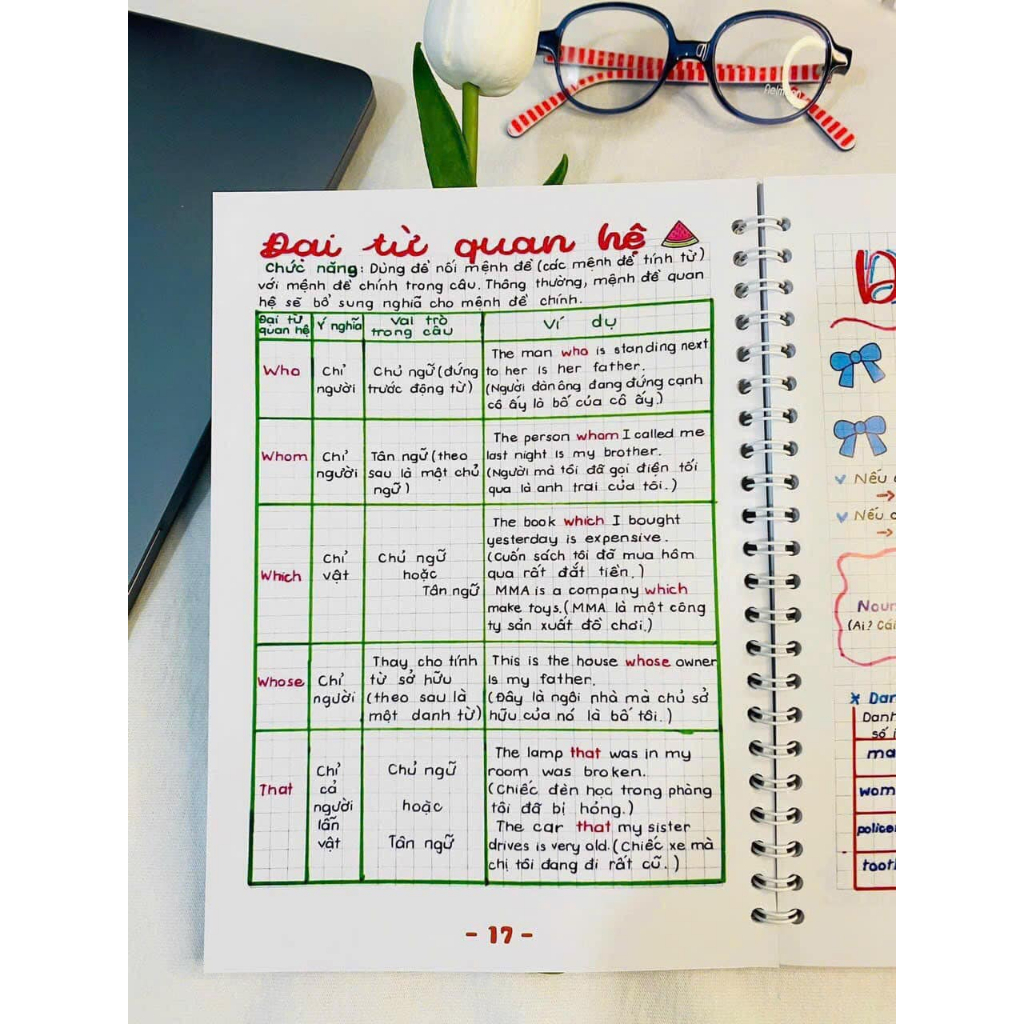 Đại từ quan hệ
Chức năng: Dùng để nối mệnh đề (các mệnh đề tính từ)
với mệnh đề chính trong câu. Thông thường, mệnh đề quan
hệ sẽ bổ sung nghĩa cho mệnh đề chính.
Đại từ
quan hệ
Ý nghĩa
Vai trò
trong câu
Ví dụ
Who
Chỉ
người
Chủ ngữ (đứng
trước động từ)
The man who is standing next
to her is her father.
(Người đàn ông đang đứng cạnh
cô ấy là bố của cô ấy)
Whom
Chỉ
người
Tân ngữ (theo
sau là một chủ
ngữ)
The person whom I called me
last night is my brother.
(Người mà tôi đã gọi điện tối
qua là anh trai của tôi.)
Which
Chỉ
vật
Chủ ngữ
hoặc
Tân ngữ
The book which I bought
yesterday is expensive.
(Cuốn sách tôi đã mua hôm
qua rất đắt tiền.)
MMA is a company which
make toys. (MMA là một công
ty sản xuất đồ chơi.)
Whose
Chỉ
người
Thay cho tính
từ sở hữu
(theo sau là
một danh từ)
This is the house whose owner
is my father.
(Đây là ngôi nhà mà chủ sở
hữu của nó là bố tôi.)
That
Chỉ
cả
người
lẫn
vật
Chủ ngữ
hoặc
Tân ngữ
The lamp that was in my
room was broken.
(Chiếc đèn học trong phòng
tôi đã bị hỏng.)
The car that my sister
drives is very old. (Chiếc xe mà
chị tôi đang đi rất cũ.)
- 17 -
Nếu
→
Nếu
→
Noun
(Ai? Cái
* Dan
Danh
số
ma
wom
police
toot